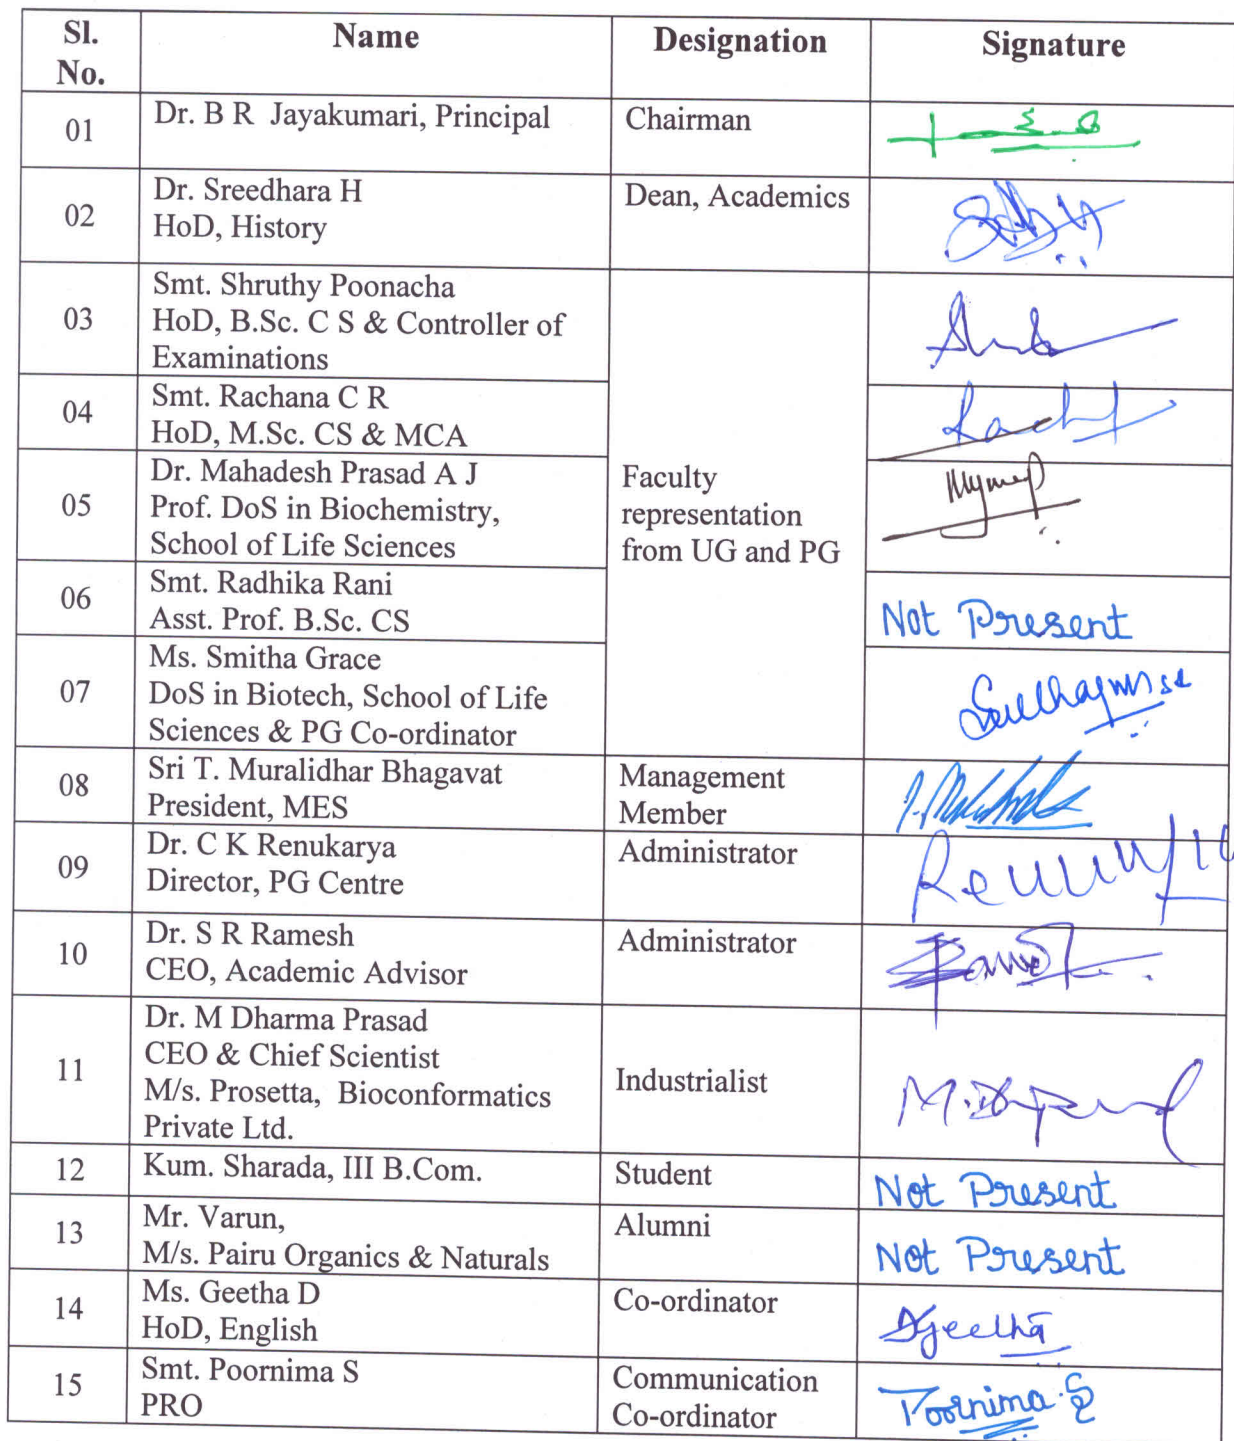 Sl.
No.
Name
Designation
Signature
01
Dr. B R Jayakumari, Principal
Chairman
02
Dr. Sreedhara H
HoD, History
Dean, Academics
03
Smt. Shruthy Poonacha
HoD, B.Sc. C S & Controller of
Examinations
Faculty
representation
from UG and PG
04
Smt. Rachana C R
HoD, M.Sc. CS & MCA
05
Dr. Mahadesh Prasad A J
Prof. DoS in Biochemistry,
School of Life Sciences
06
Smt. Radhika Rani
Asst. Prof. B.Sc. CS
Not Present
07
Ms. Smitha Grace
DoS in Biotech, School of Life
Sciences & PG Co-ordinator
08
Sri T. Muralidhar Bhagavat
President, MES
Management
Member
09
Dr. C K Renukarya
Director, PG Centre
Administrator
10
Dr. S R Ramesh
CEO, Academic Advisor
Administrator
11
Dr. M Dharma Prasad
CEO & Chief Scientist
M/s. Prosetta, Bioconformatics
Private Ltd.
Industrialist
12
Kum. Sharada, III B.Com.
Student
Not Present
13
Mr. Varun,
M/s. Pairu Organics & Naturals
Alumni
Not Present
14
Ms. Geetha D
HoD, English
Co-ordinator
15
Smt. Poornima S
PRO
Communication
Co-ordinator
Poornima. S